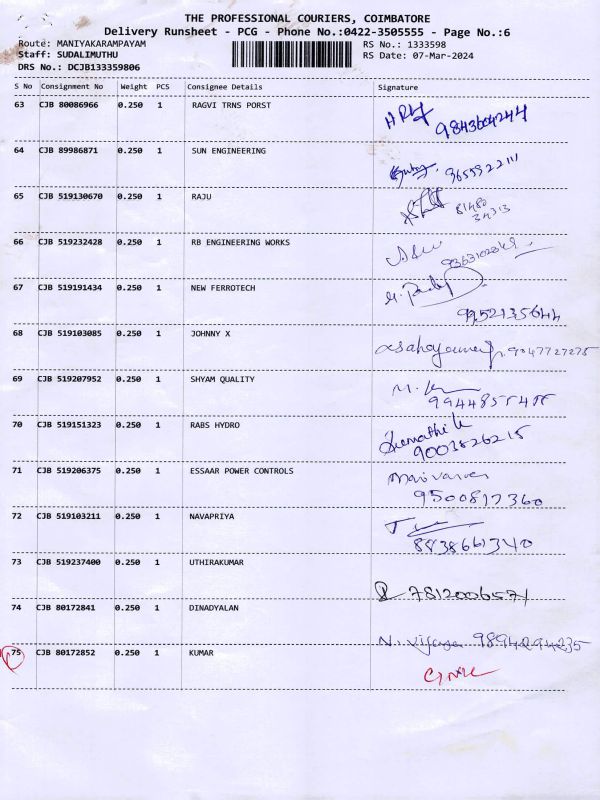 THE PROFESSIONAL COURIERS, COIMBATORE
Delivery Runsheet - PCG - Phone No.:0422-3505555 - Page No.:6
Route: MANIYAKARAMPAYAM RS No.: 1333598
Staff: SUDALIMUTHU RS Date: 07-Mar-2024
DRS No.: DCJB133359806
S No Consignment No Weight PCS Consignee Details Signature
63 CJB 80086966 0.250 1 RAGVI TRNS PORST
9843604244
64 CJB 89986871 0.250 1 SUN ENGINEERING
65 CJB 519130670 0.250 1 RAJU
81480
34313
66 CJB 519232428 0.250 1 RB ENGINEERING WORKS
67 CJB 519191434 0.250 1 NEW FERROTECH
9952135644
68 CJB 519103085 0.250 1 JOHNNY X
9047727275
69 CJB 519207952 0.250 1 SHYAM QUALITY
70 CJB 519151323 0.250 1 RABS HYDRO
9003826218
71 CJB 519206375 0.250 1 ESSAAR POWER CONTROLS
9500817360
72 CJB 519103211 0.250 1 NAVAPRIYA
8838661340
73 CJB 519237400 0.250 1 UTHIRAKUMAR
7812006571
74 CJB 80172841 0.250 1 DINADYALAN
N. Vijaya 9894294235
75 CJB 80172852 0.250 1 KUMAR